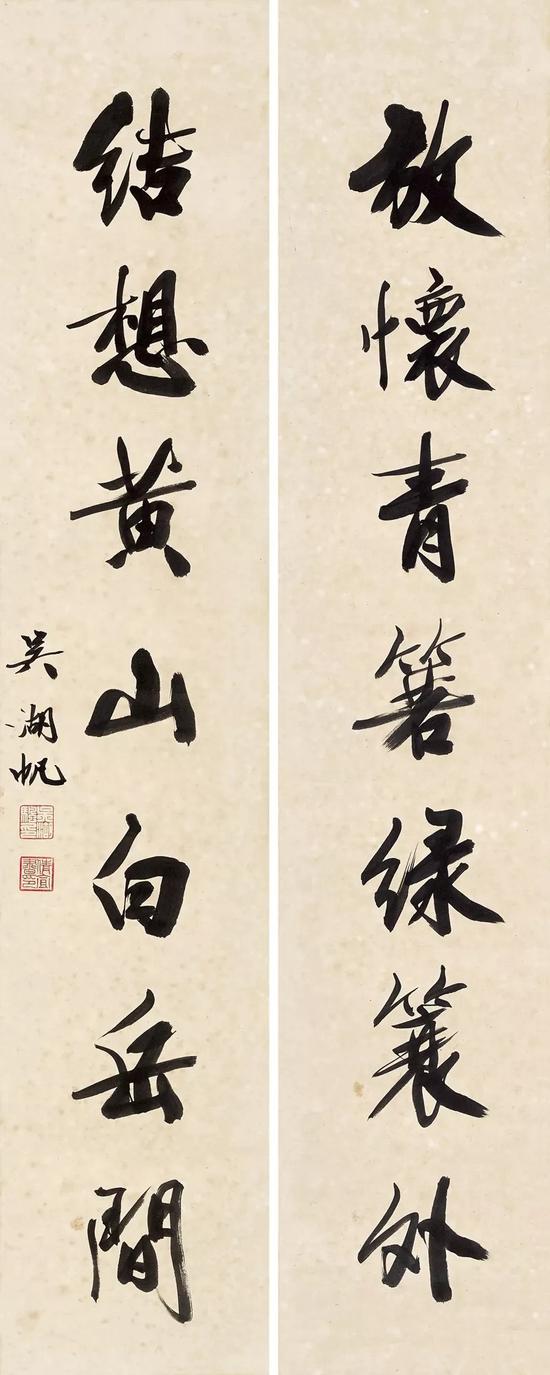 放懷青箬綠簑外
結想黃山白岳間
吳湖帆